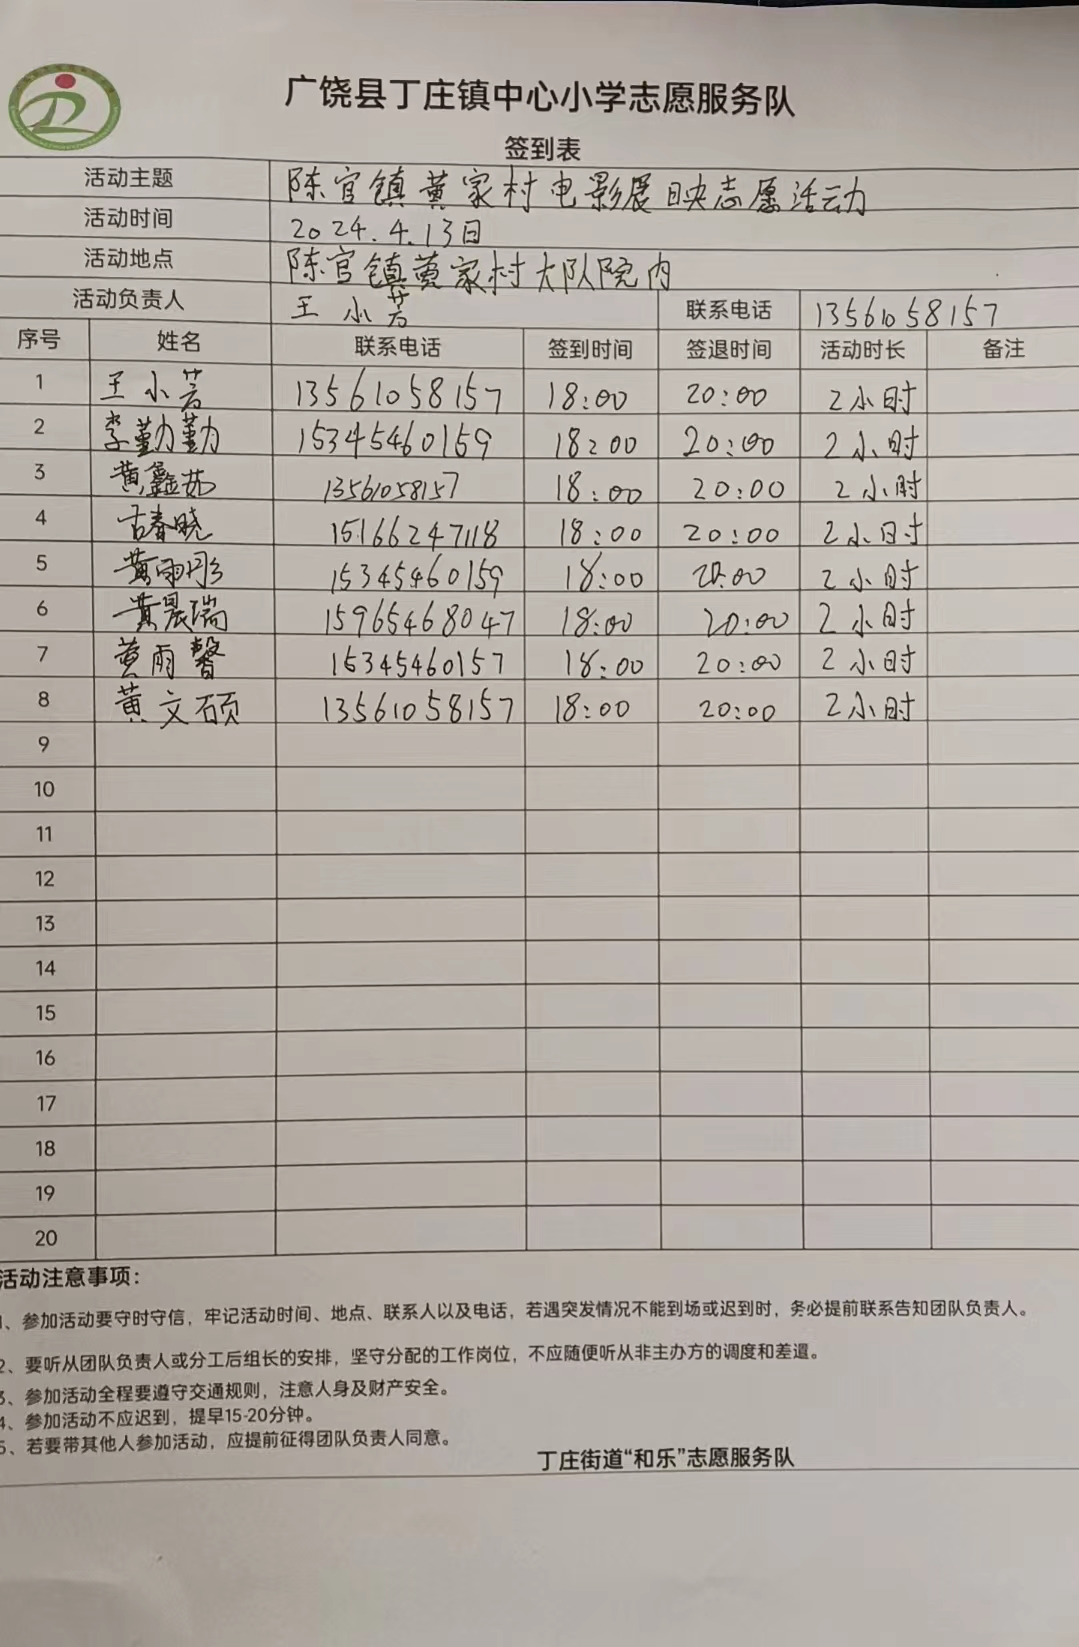 广饶县丁庄镇中心小学志愿服务队
签到表
活动主题 陈官镇黄家村电影展映志愿活动
活动时间 2024.4.13日
活动地点 陈官镇黄家村大队院内
活动负责人 王小芳 联系电话 13561058157
序号 姓名 联系电话 签到时间 签退时间 活动时长 备注
1 王小芳 13561058157 18:00 20:00 2小时
2 李勤勤 15345460159 18:00 20:00 2小时
3 黄鑫茹 13561058157 18:00 20:00 2小时
4 古春晓 15166247118 18:00 20:00 2小时
5 黄雨彤 15345460159 18:00 20:00 2小时
6 黄晨瑞 15965468047 18:00 20:00 2小时
7 黄雨馨 15345460157 18:00 20:00 2小时
8 黄文硕 13561058157 18:00 20:00 2小时
9
10
11
12
13
14
15
16
17
18
19
20
活动注意事项：
1、参加活动要守时守信，牢记活动时间、地点、联系人以及电话，若遇突发情况不能到场或迟到时，务必提前联系告知团队负责人。
2、要听从团队负责人或分工后组长的安排，坚守分配的工作岗位，不应随便听从非主办方的调度和差遣。
3、参加活动全程要遵守交通规则，注意人身及财产安全。
4、参加活动不应迟到，提早15-20分钟。
5、若要带其他人参加活动，应提前征得团队负责人同意。
丁庄街道“和乐”志愿服务队